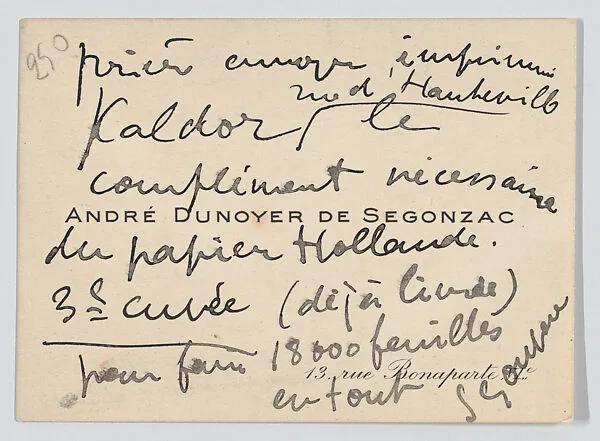 250
prière envoyer imprimeur
rue d'Hauteville
Kaldor, le
complément nécessaire
ANDRÉ DUNOYER DE SEGONZAC
du papier Hollande.
3e cuvée (déjà livrée)
pour faire 18000 feuilles
13, rue Bonaparte, VIe
en tout Segonzac